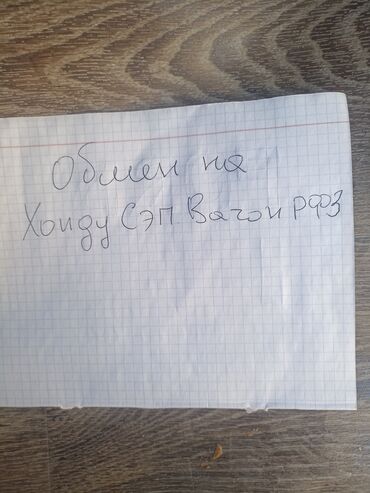 Обмен на
Хонду Сэп. Вагон РФЗ